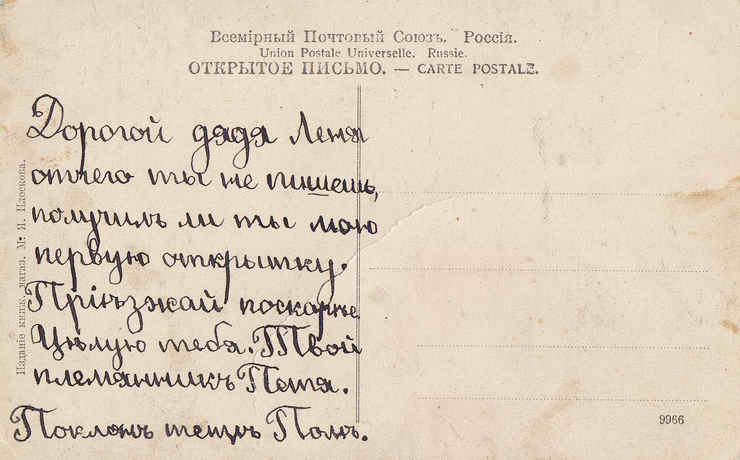 Всемірный Почтовый Союзъ. Россія.
Union Postale Universelle. Russie.
ОТКРЫТОЕ ПИСЬМО. — CARTE POSTALE.
Дорогой дядя Леня
отчего ты не пишешь,
получилъ ли ты мою
первую открытку.
Пріѣзжай поскорѣе
Цѣлую тебя. Твой
племянникъ Петя.
Поклонъ тетѣ Полѣ.
Изданіе книж. магаз. М. Я.
9966